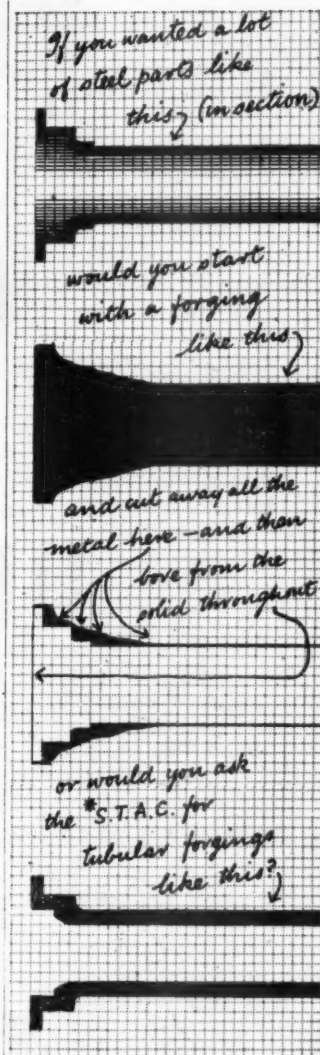 If you wanted a lot
of steel parts like
this (in section)
would you start
with a forging
like this
and cut away all the
metal here – and then
bore from the
solid throughout
or would you ask
the *S.T.A.C. for
tubular forgings
like this?